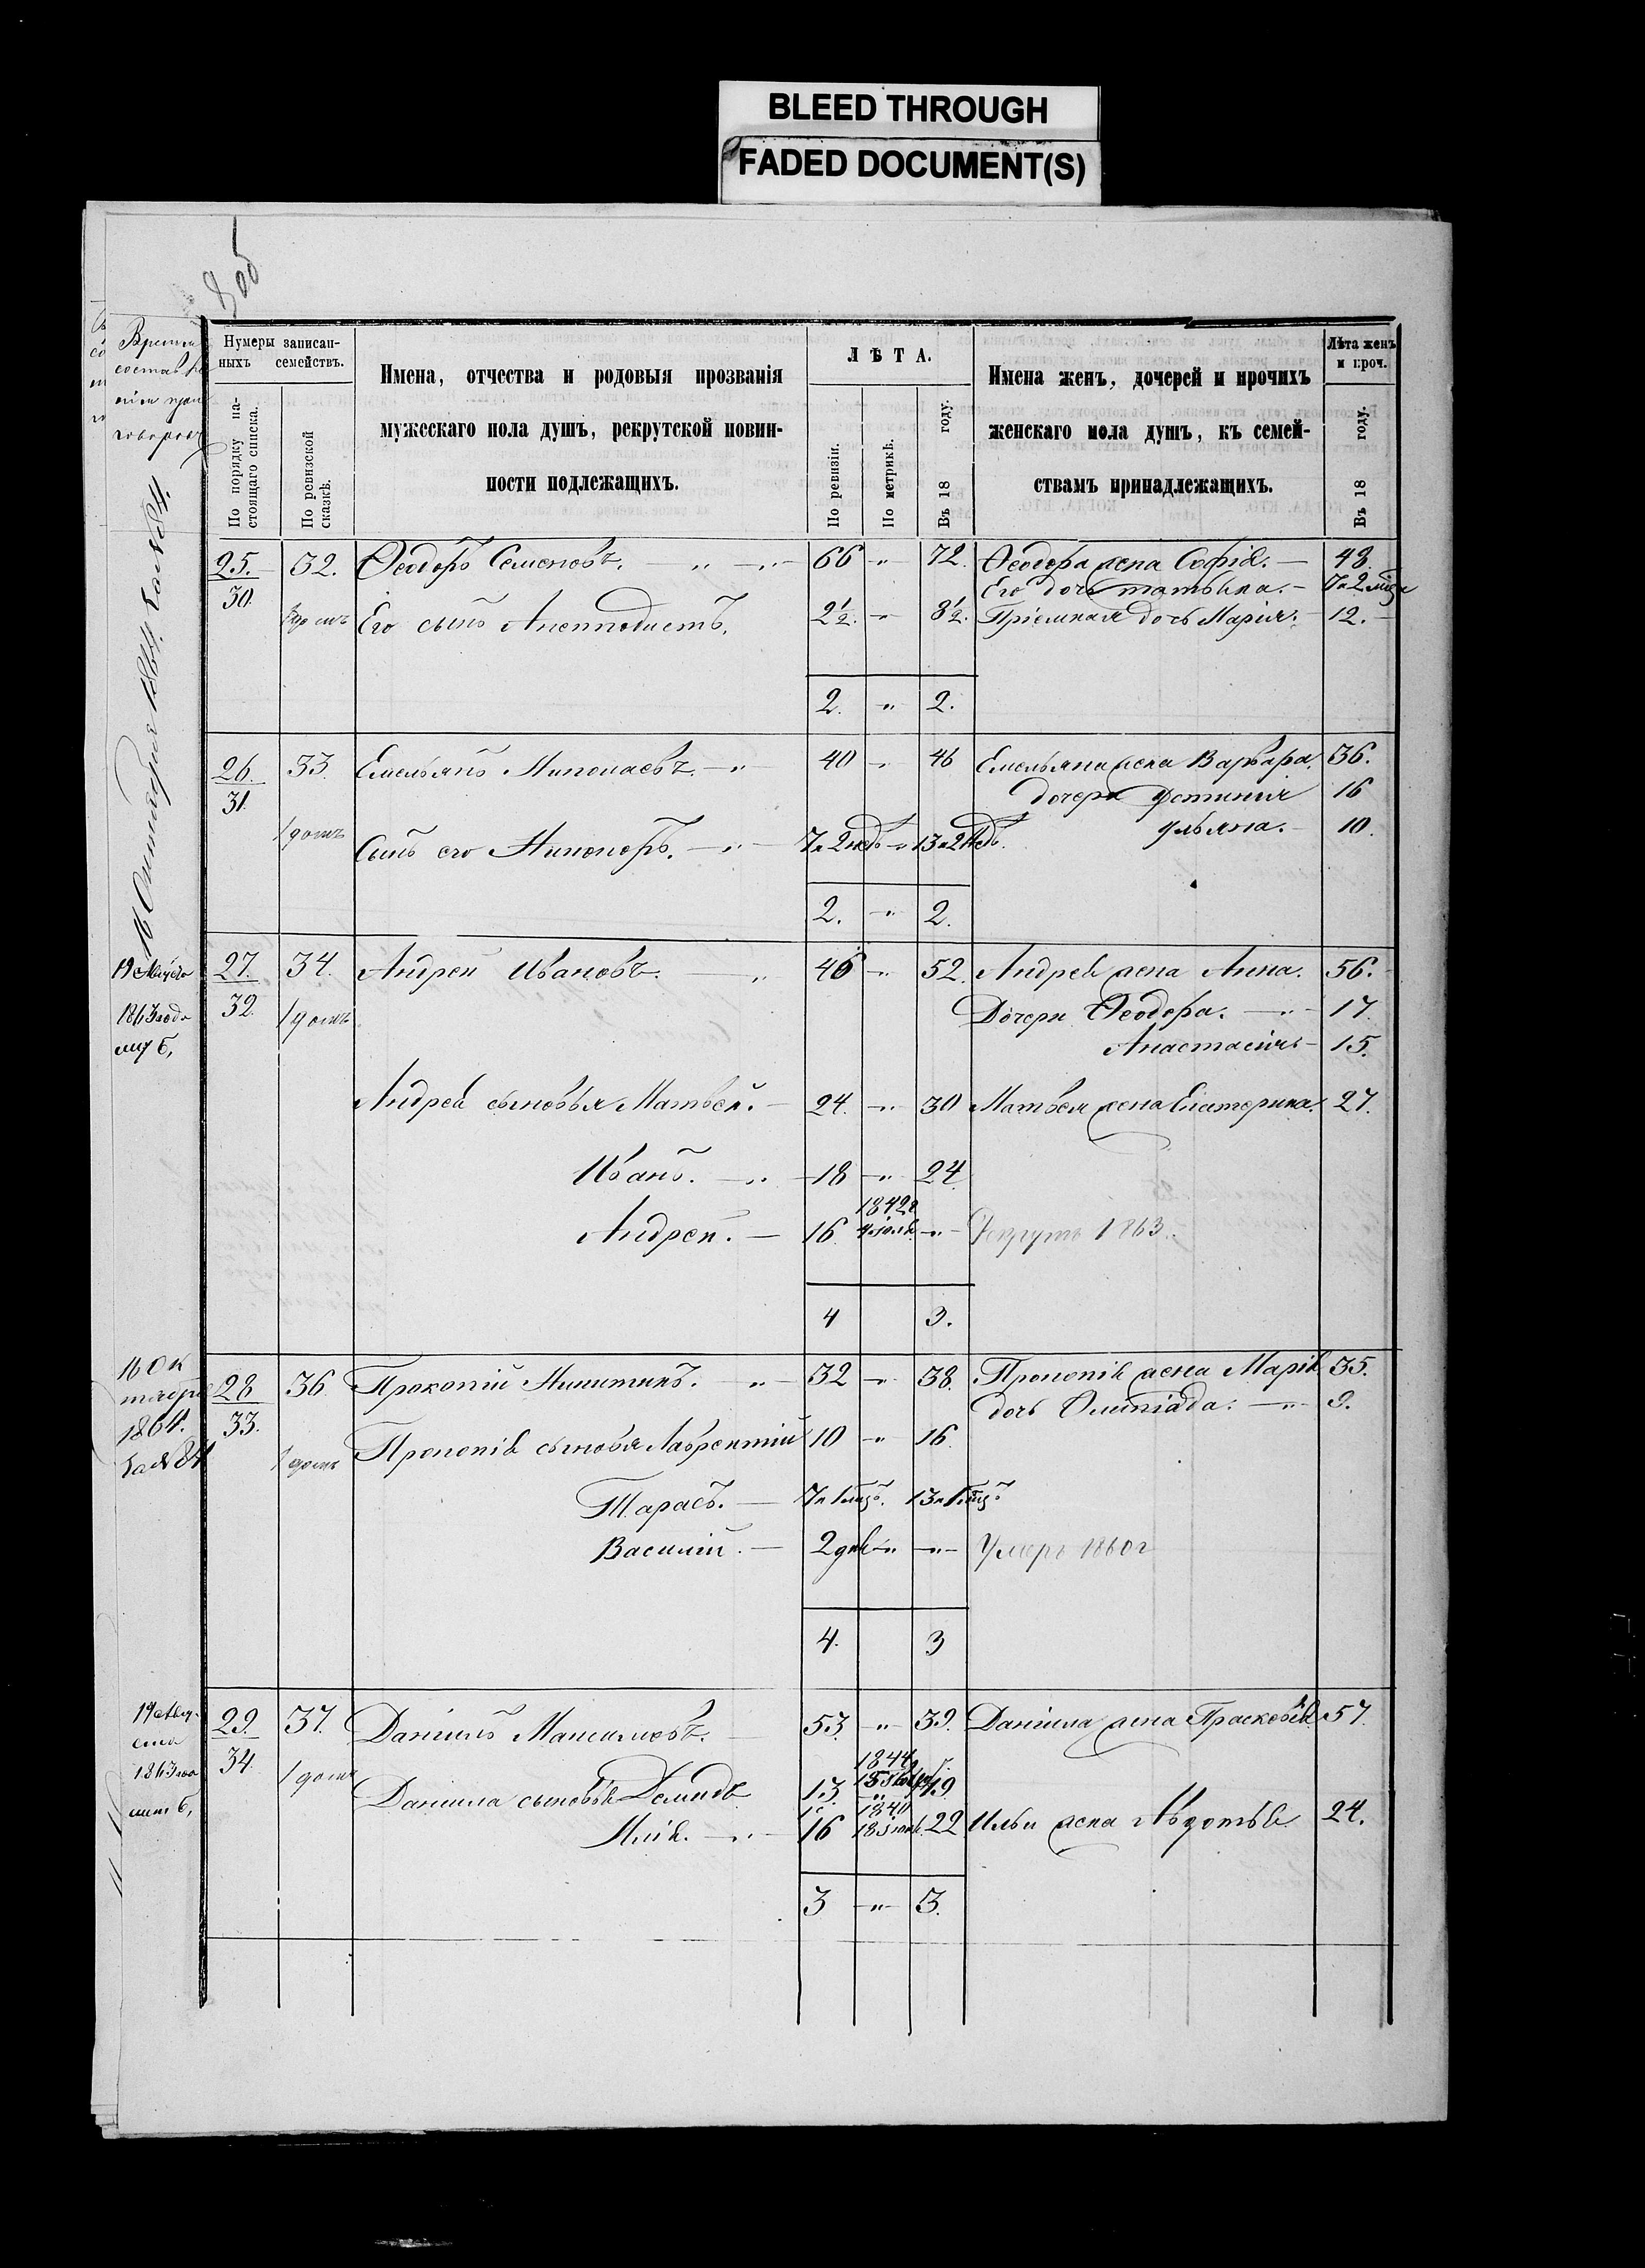 BLEED THROUGH
FADED DOCUMENT(S)
Время
Нумеры записан-
ныхъ семействъ.
По порядку на-
стоящаго списка.
По ревизской
сказкѣ.
Имена, отчества и родовыя прозванія
мужескаго пола душъ, рекрутской повин-
ности подлежащихъ.
ЛѢТА.
По ревизіи.
По метрикѣ.
Въ 18 году.
Имена женъ, дочерей и прочихъ
женскаго пола душъ, къ семей-
ствамъ принадлежащихъ.
Лѣта женъ
и проч.
Въ 18 году.
16 Октября 1864.
25. 32. Ѳеодоръ Семеновъ. — „ — „ — 66 „ 72. Ѳеодора жена Софія. — 48.
30. Его дочь Татьяна. —
Его сынъ Анемподистъ. 2½. „ 8½. Пріемная дочь Марія. 12. —
2. „ 2.
26. 33. Емельянъ Николаевъ. — „ 40 „ 46 Емельяна жена Варвара. 36.
31. дочери Устинія 16
1 домъ Ульяна. — 10.
Сынъ его Никоноръ. — „ — 7 и 2 недѣ „ 13 и 2 недѣ.
2. „ 2.
19 Августа 27. 34. Андрей Ивановъ. — „ 46 „ 52. Андрея жена Анна. 56.
1863 года 32. 1 домъ Дочери Ѳеодора. — „ — 17.
Анастасія — 15.
Андрея сыновья Матвей. — 24. „ 30 Матвея жена Екатерина. 27.
Иванъ. — „ 18 „ 24
1842
Андрей. — 16 — „ — Рекрутъ 1863.
4 3.
16 Ок
тября 28 36. Прокопій Никитинъ. „ 32 „ 38. Прокопія жена Марія 35.
1864. 33. дочь Олимпіада: — „ — 9.
1 домъ Прокопія сыновья Лаврентій 10 „ 16.
Тарасъ. — 7 и 1 мцъ. 13 и 1 мцъ
Василій. — 2 дня „ — „ — Умеръ 1860 г
4. 3
19 Авгу-
ста 29. 37. Даніилъ Максимовъ. — 53. „ 39. Даніила жена Прасковья 57.
1863 34. 1 домъ 1844
Даніила сыновья Демидъ 13. 19
1840
Илія. — „ — 16 18 22 Ильи жена Авдотья 24.
3 — „ — 3.